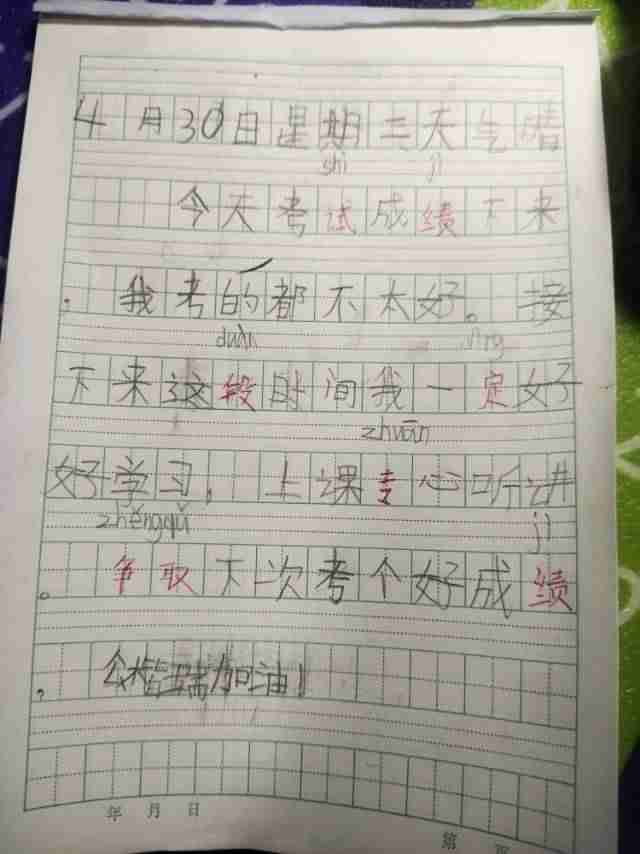 4月30日星期三天气晴
shì jì
今天考试成绩下来
，我考的都不太好。接
duàn dìng
下来这段时间我一定好
zhuān
好学习，上课专心听讲
zhēngqǔ jì
。争取下次考个好成绩
，加油！
年 月 日
第 页